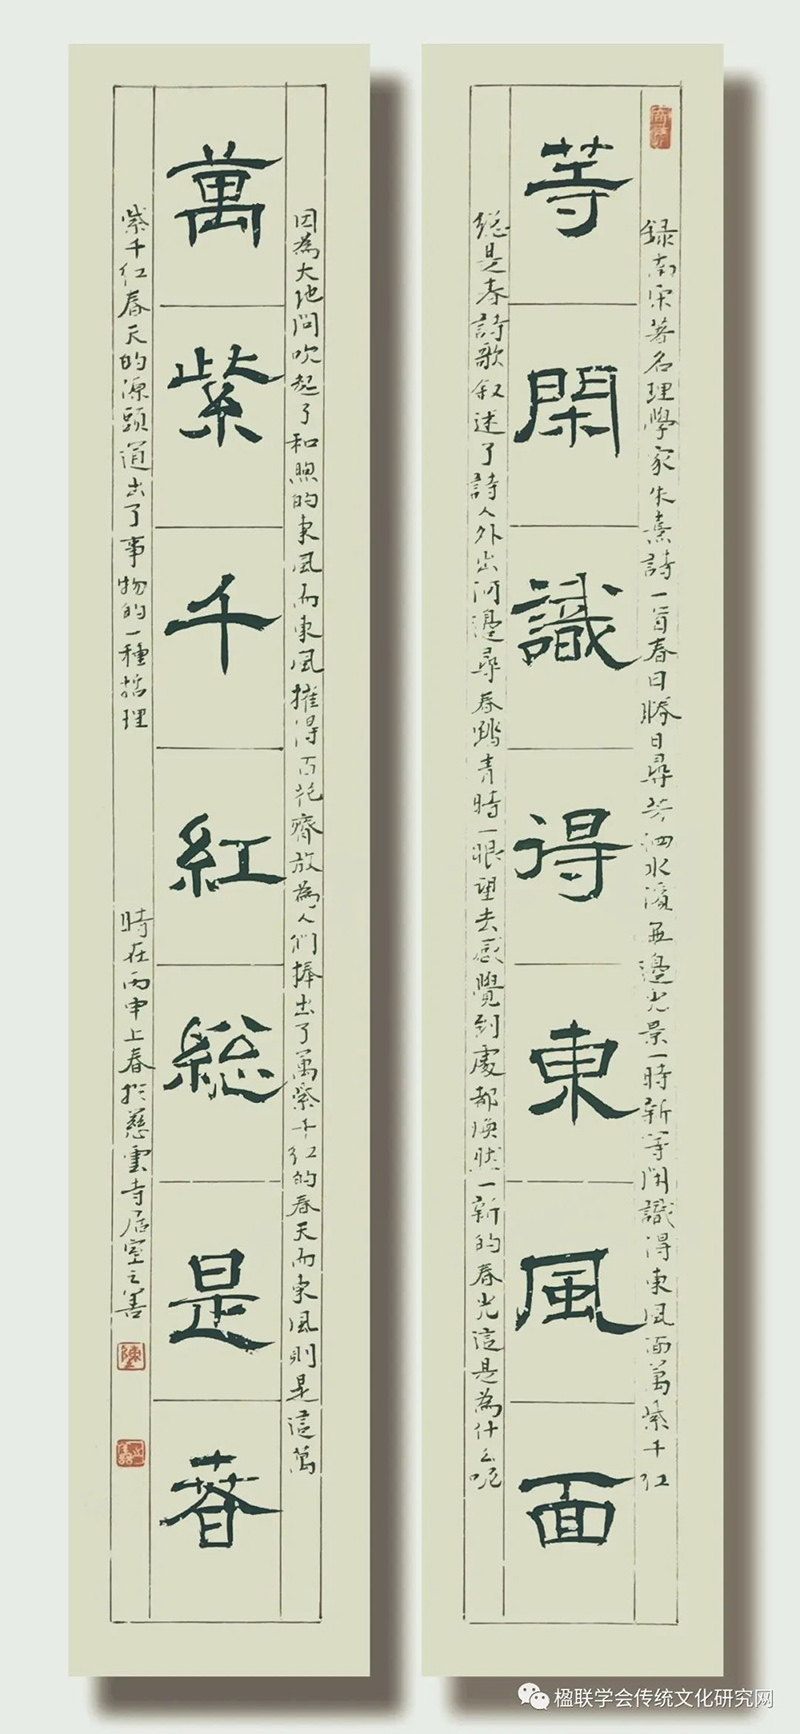 等閑識得東風面
録南宋著名理學家朱熹詩一首春日勝日尋芳泗水濱無邊光景一時新等閑識得東風面萬紫千紅
總是春詩歌叙述了詩人外出河邊尋春踏青時一眼望去感覺到處都煥然一新的春光這是為什么呢
萬紫千紅総是春
因為大地間吹起了和煦的東風而東風摧得百花齊放為人們捧出了萬紫千紅的春天而東風則是這萬
紫千紅春天的源頭道出了事物的一種哲理
時在丙申上春於慈雲寺居室之善
陳
楹联学会传统文化研究网